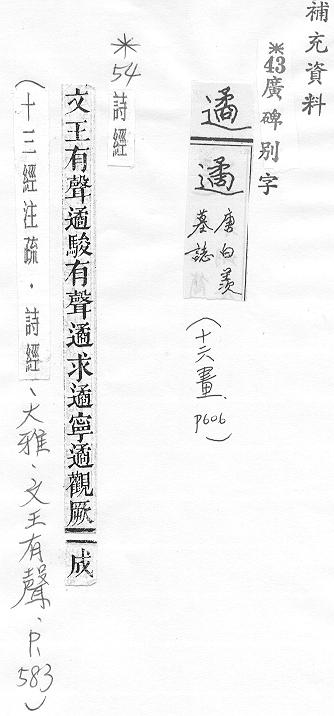 補充資料
※43廣碑別字
遹
遹 唐白羨墓誌
（十六畫、P606）
※54 詩經
文王有聲遹駿有聲遹求遹寧遹觀厥成
（十三經注疏・詩經、大雅、文王有聲、P、583）